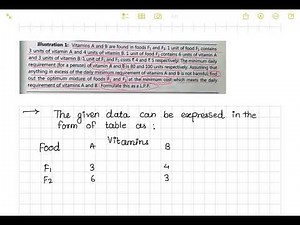 Illustration 1: Vitamins A and B are found in foods F₁ and F₂. 1 unit of food F₁ contains
3 units of vitamin A and 4 units of vitamin B. 1 unit of food F₂ contains 6 units of vitamin A
and 3 units of vitamin B. 1 unit of F₁ and F₂ costs ₹ 4 and ₹ 5 respectively. The minimum daily
requirement (for a person) of vitamin A and B is 80 and 100 units respectively. Assuming that
anything in excess of the daily minimum requirement of vitamin A and B is not harmful, find
out the optimum mixture of foods F₁ and F₂ at the minimum cost which meets the daily
requirement of vitamins A and B. Formulate this as a L.P.P.
→ The given data can be expressed in the
form of table as :
Vitamins
Food A B
F₁ 3 4
F₂ 6 3